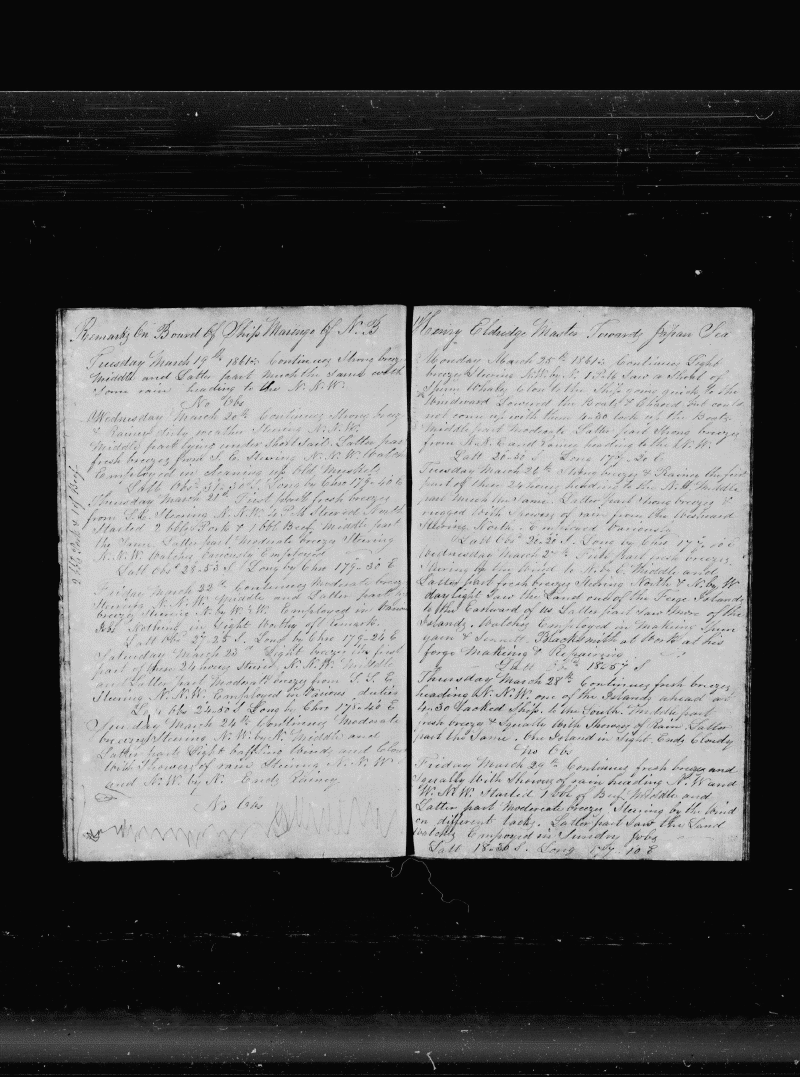 Remarks On Board Of Ship Marengo Of N. B
Tuesday March 19th 1861. Continues Strong breezes
Middle and Latter part much the Same with
Some rain heading to the N. N. W.
No Obs
Wednesday March 20th Continues Strong breeze
& Rainy dirty weather Stering N. N. W.
Middle part lying under Short Sail. Latter part
fresh breezes from S. E. Stering N. N. W. Watch
Employed in Scouring up Old Muskets
Latt Obs 31-30 S. Long by Chro 179-40 E
Thursday March 21st First part fresh breezes
from S. E. Stering N. N. W. 4 P. M Steered North
Started 2 bbls Pork & 1 bbl Beef Middle part
the Same. Latter part Moderate breezes Stering
N. N. W. Watches Variously Employed
Latt Obs 28-53 S Long by Chro 179-30 E
2 bbls Pork & 1 of Beef
Friday March 22nd Continues Moderate breezes
Stering N. N. W. Middle and Latter part
breezes Stering N. by W. ½ W. Employed in Various
Jobs Nothing in Sight Worthy of Remark.
Latt Obs 27 25 S. Long by Chro 179-24 E
Saturday March 23rd Light breezes the first
part of these 24 hours Stering N. N. W. Middle
and Latter part Moderate breezes from S. S. E.
Stering N. N. W. Employed in Various duties
Latt Obs 24-50 S Long by Chro 178-40 E
Sunday March 24th Continues Moderate
breezes Stering N. W. by N. Middle and
Latter part Light baffling Winds and Cloudy
With Showers of rain Stering N. N. W
and N. W. by N. Ends Rainy
No Obs
Henry Eldredge Master Towards Japan Sea
Monday March 25th 1861. Continues Light
breezes Stering N. W. by N. 1 P. M. Saw a Shoal of
Sperm Whales Close to the Ship going quick to the
Windward Lowered the Boats & Chased but could
not come up with them 4-30 took up the Boats
Middle part moderate Latter part Strong breezes
from N. N. E and Rainy heading to the N. W.
Latt 23-30 S. Long 177-20 E
Tuesday March 26th Strong breezes & Rainy the first
part of these 24 hours heading to the N. W Middle
part Much the Same. Latter part Strong breezes &
rugged With Showers of rain from the Westward
Stering North. Employed Variously
Latt Obs 21-21 S Long by Chro 177
Wednesday March 27th First part fresh breezes
Stering by the Wind to N. by E. Middle and
Latter part fresh breezes Stering North & N. by W
day light Saw the Land one of the Feige Islands
to the Eastward of us Latter part Saw More of the
Islands. Watches Employed in Making Spun
yarn & Sennett. Blacksmith at Work at his
forge Making & Repairing
Latt Obs 18-57 S
Thursday March 28th Continues fresh breezes
heading N. N. W. one of the Islands ahead at
4-30 Tacked Ship to the South. Middle part
fresh breezes & Squally With Showers of Rain Latter
part the Same. One Island in Sight. Ends Cloudy
No Obs
Friday March 29th Continues fresh breezes and
Squally With Showers of rain heading N. W and
W. N. W Started 1 bbl of Beef. Middle and
Latter part moderate breezes Stering by the Wind
on different tacks. Latter part Saw the Land
Watches Employed in Sundry Jobs
Latt 18-30 S. Long 177-10 E